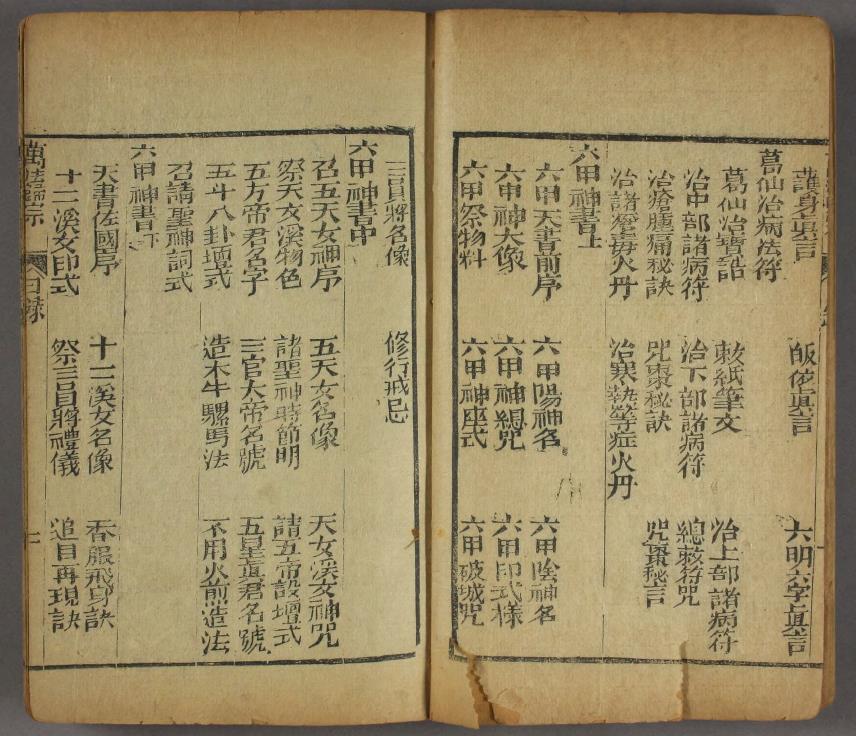 護身真言 皈依眞言 六明六字眞言
葛仙治病法符
葛仙治寶誥 敕紙筆文 治上部諸病符
治中部諸病符 治下部諸病符 總敕符咒
治瘡腫痛秘訣 咒棗秘訣 咒棗秘言
治諸瘟毒火丹 治寒熱等症火丹
六甲神書上
六甲天書前序 六甲陽神名 六甲陰神名
六甲神大像 六甲神總咒 六甲印式樣
六甲祭物料 六甲神座式 六甲破城咒
三員將名像 修行戒忌
六甲神書中
召五天女神序 五天女名像 天女溪女神咒
祭天女溪物色 諸聖神時節明 請五帝設壇式
五方帝君名字 三官大帝名號 五星眞君名號
五斗八卦壇式 造木牛騾馬法 不用火煎造法
召請聖神詞式
六甲神書下
天書佐國序 十二溪女名像 香服飛身訣
十二溪女印式 祭三員將禮儀 追目再現訣
萬法歸宗 目錄